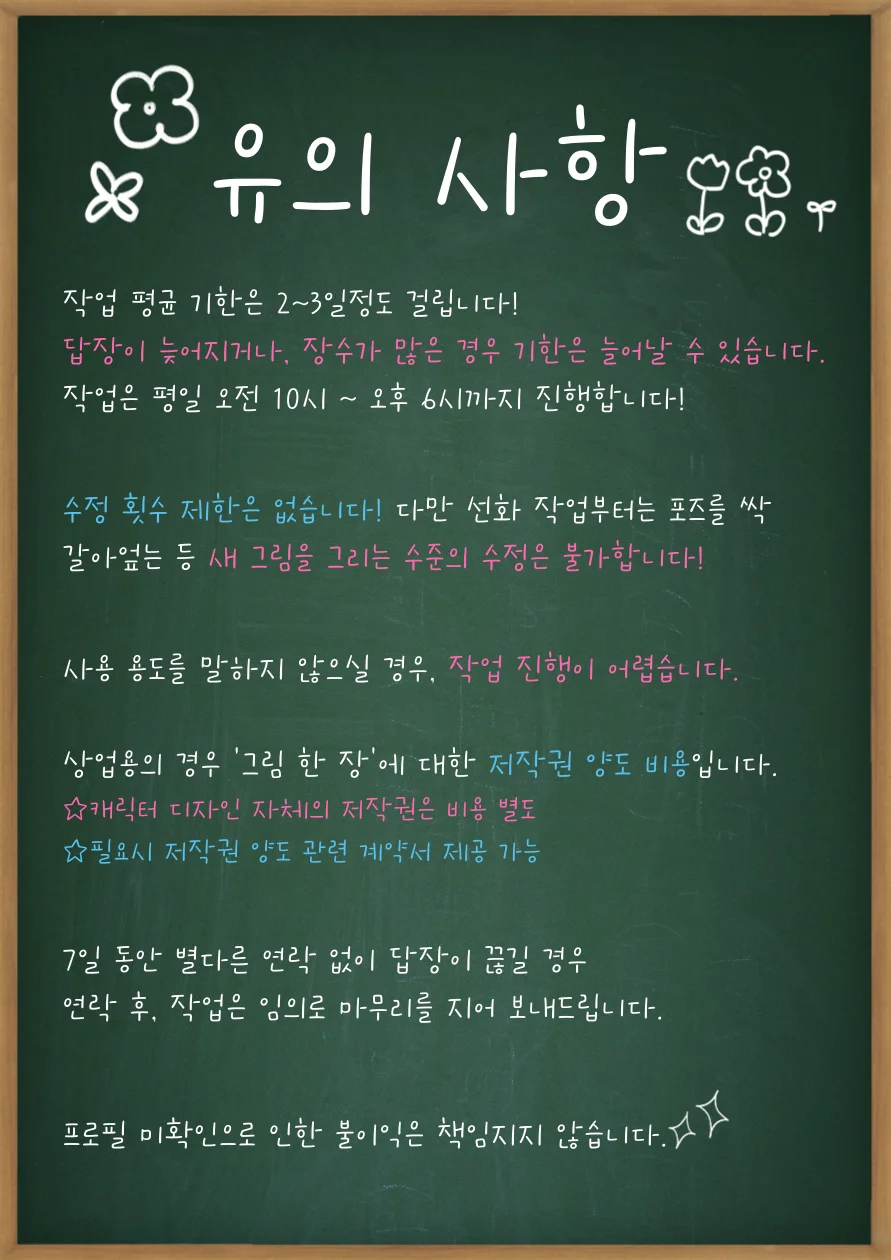 유의 사항
작업 평균 기한은 2~3일정도 걸립니다!
답장이 늦어지거나, 장수가 많은 경우 기한은 늘어날 수 있습니다.
작업은 평일 오전 10시 ~ 오후 6시까지 진행합니다!
수정 횟수 제한은 없습니다! 다만 선화 작업부터는 포즈를 싹
갈아엎는 등 새 그림을 그리는 수준의 수정은 불가합니다!
사용 용도를 말하지 않으실 경우, 작업 진행이 어렵습니다.
상업용의 경우 '그림 한 장'에 대한 저작권 양도 비용입니다.
☆캐릭터 디자인 자체의 저작권은 비용 별도
☆필요시 저작권 양도 관련 계약서 제공 가능
7일 동안 별다른 연락 없이 답장이 끊길 경우
연락 후, 작업은 임의로 마무리를 지어 보내드립니다.
프로필 미확인으로 인한 불이익은 책임지지 않습니다.